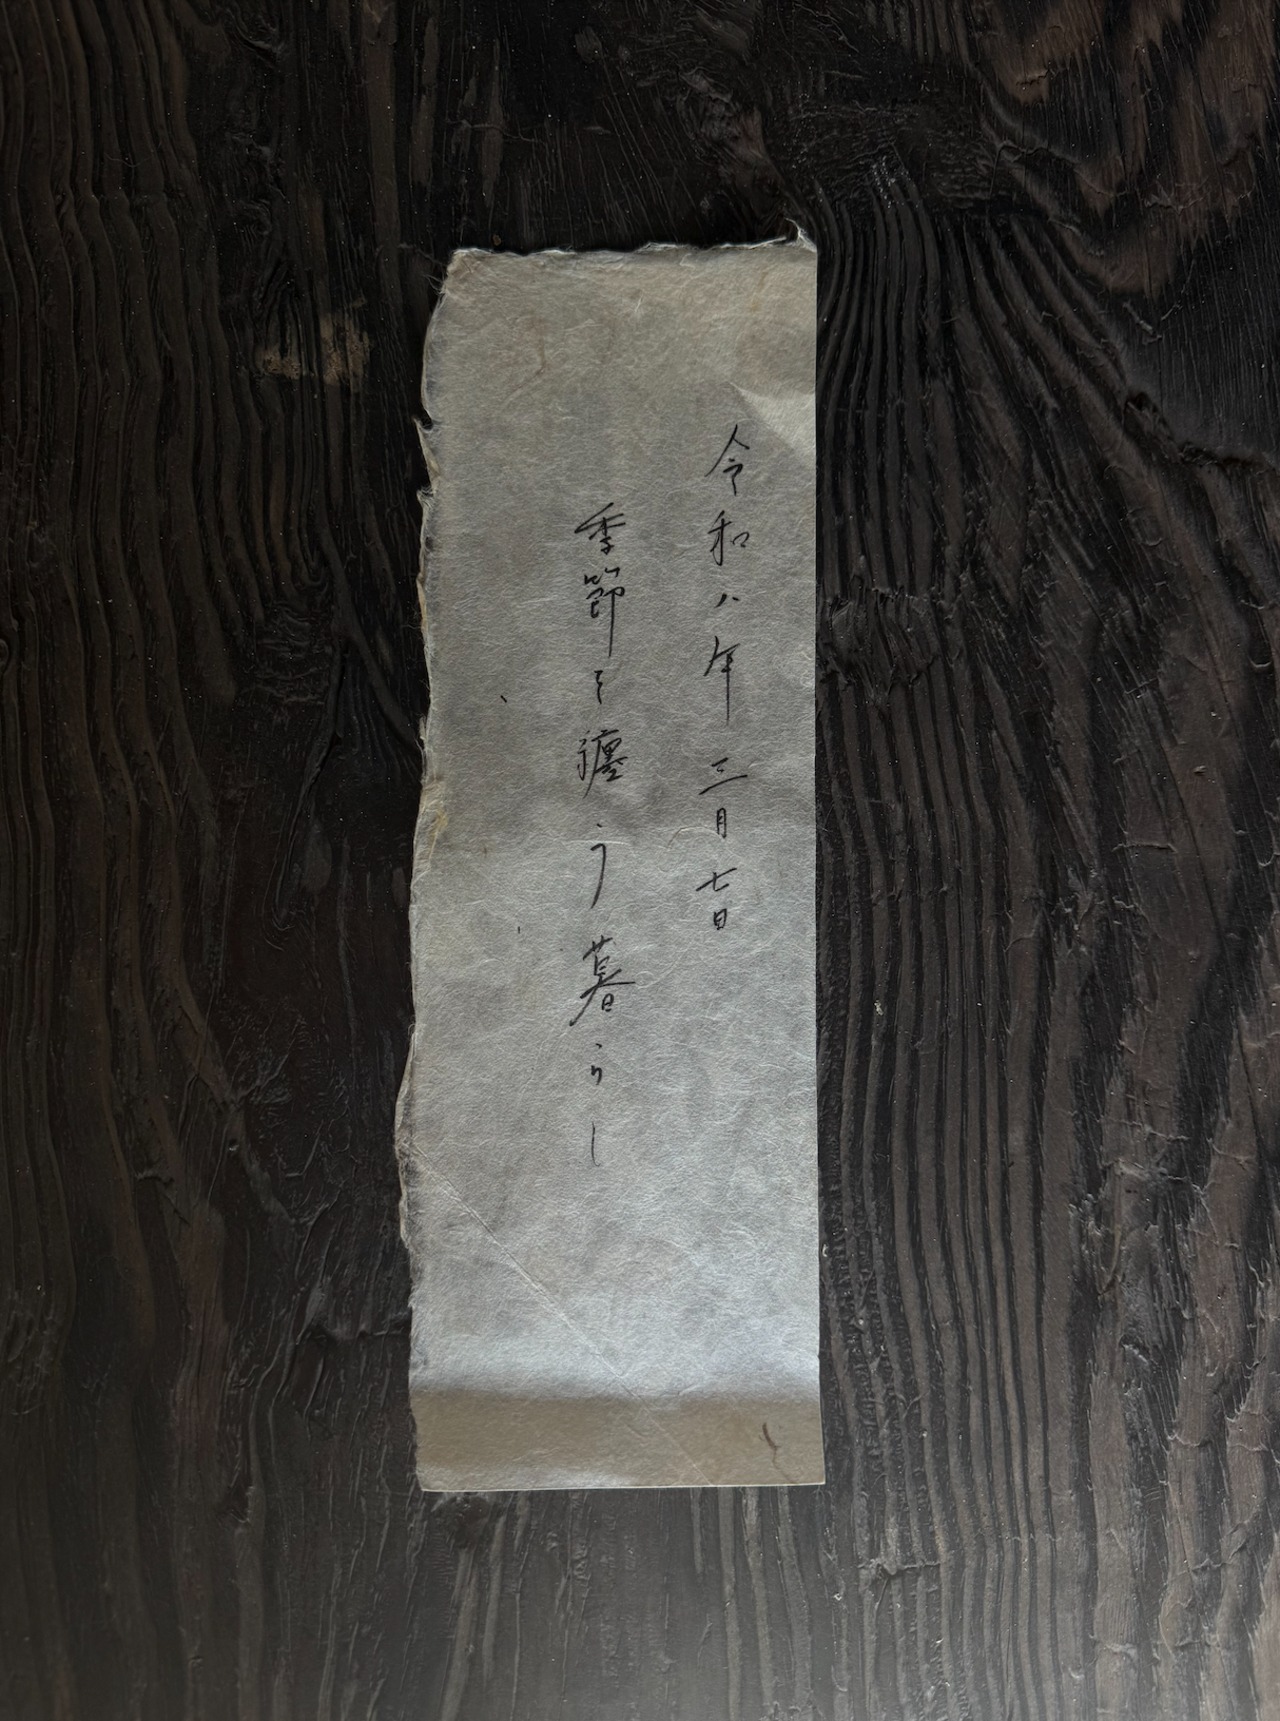 令和八年三月七日
季節を纏う暮らし